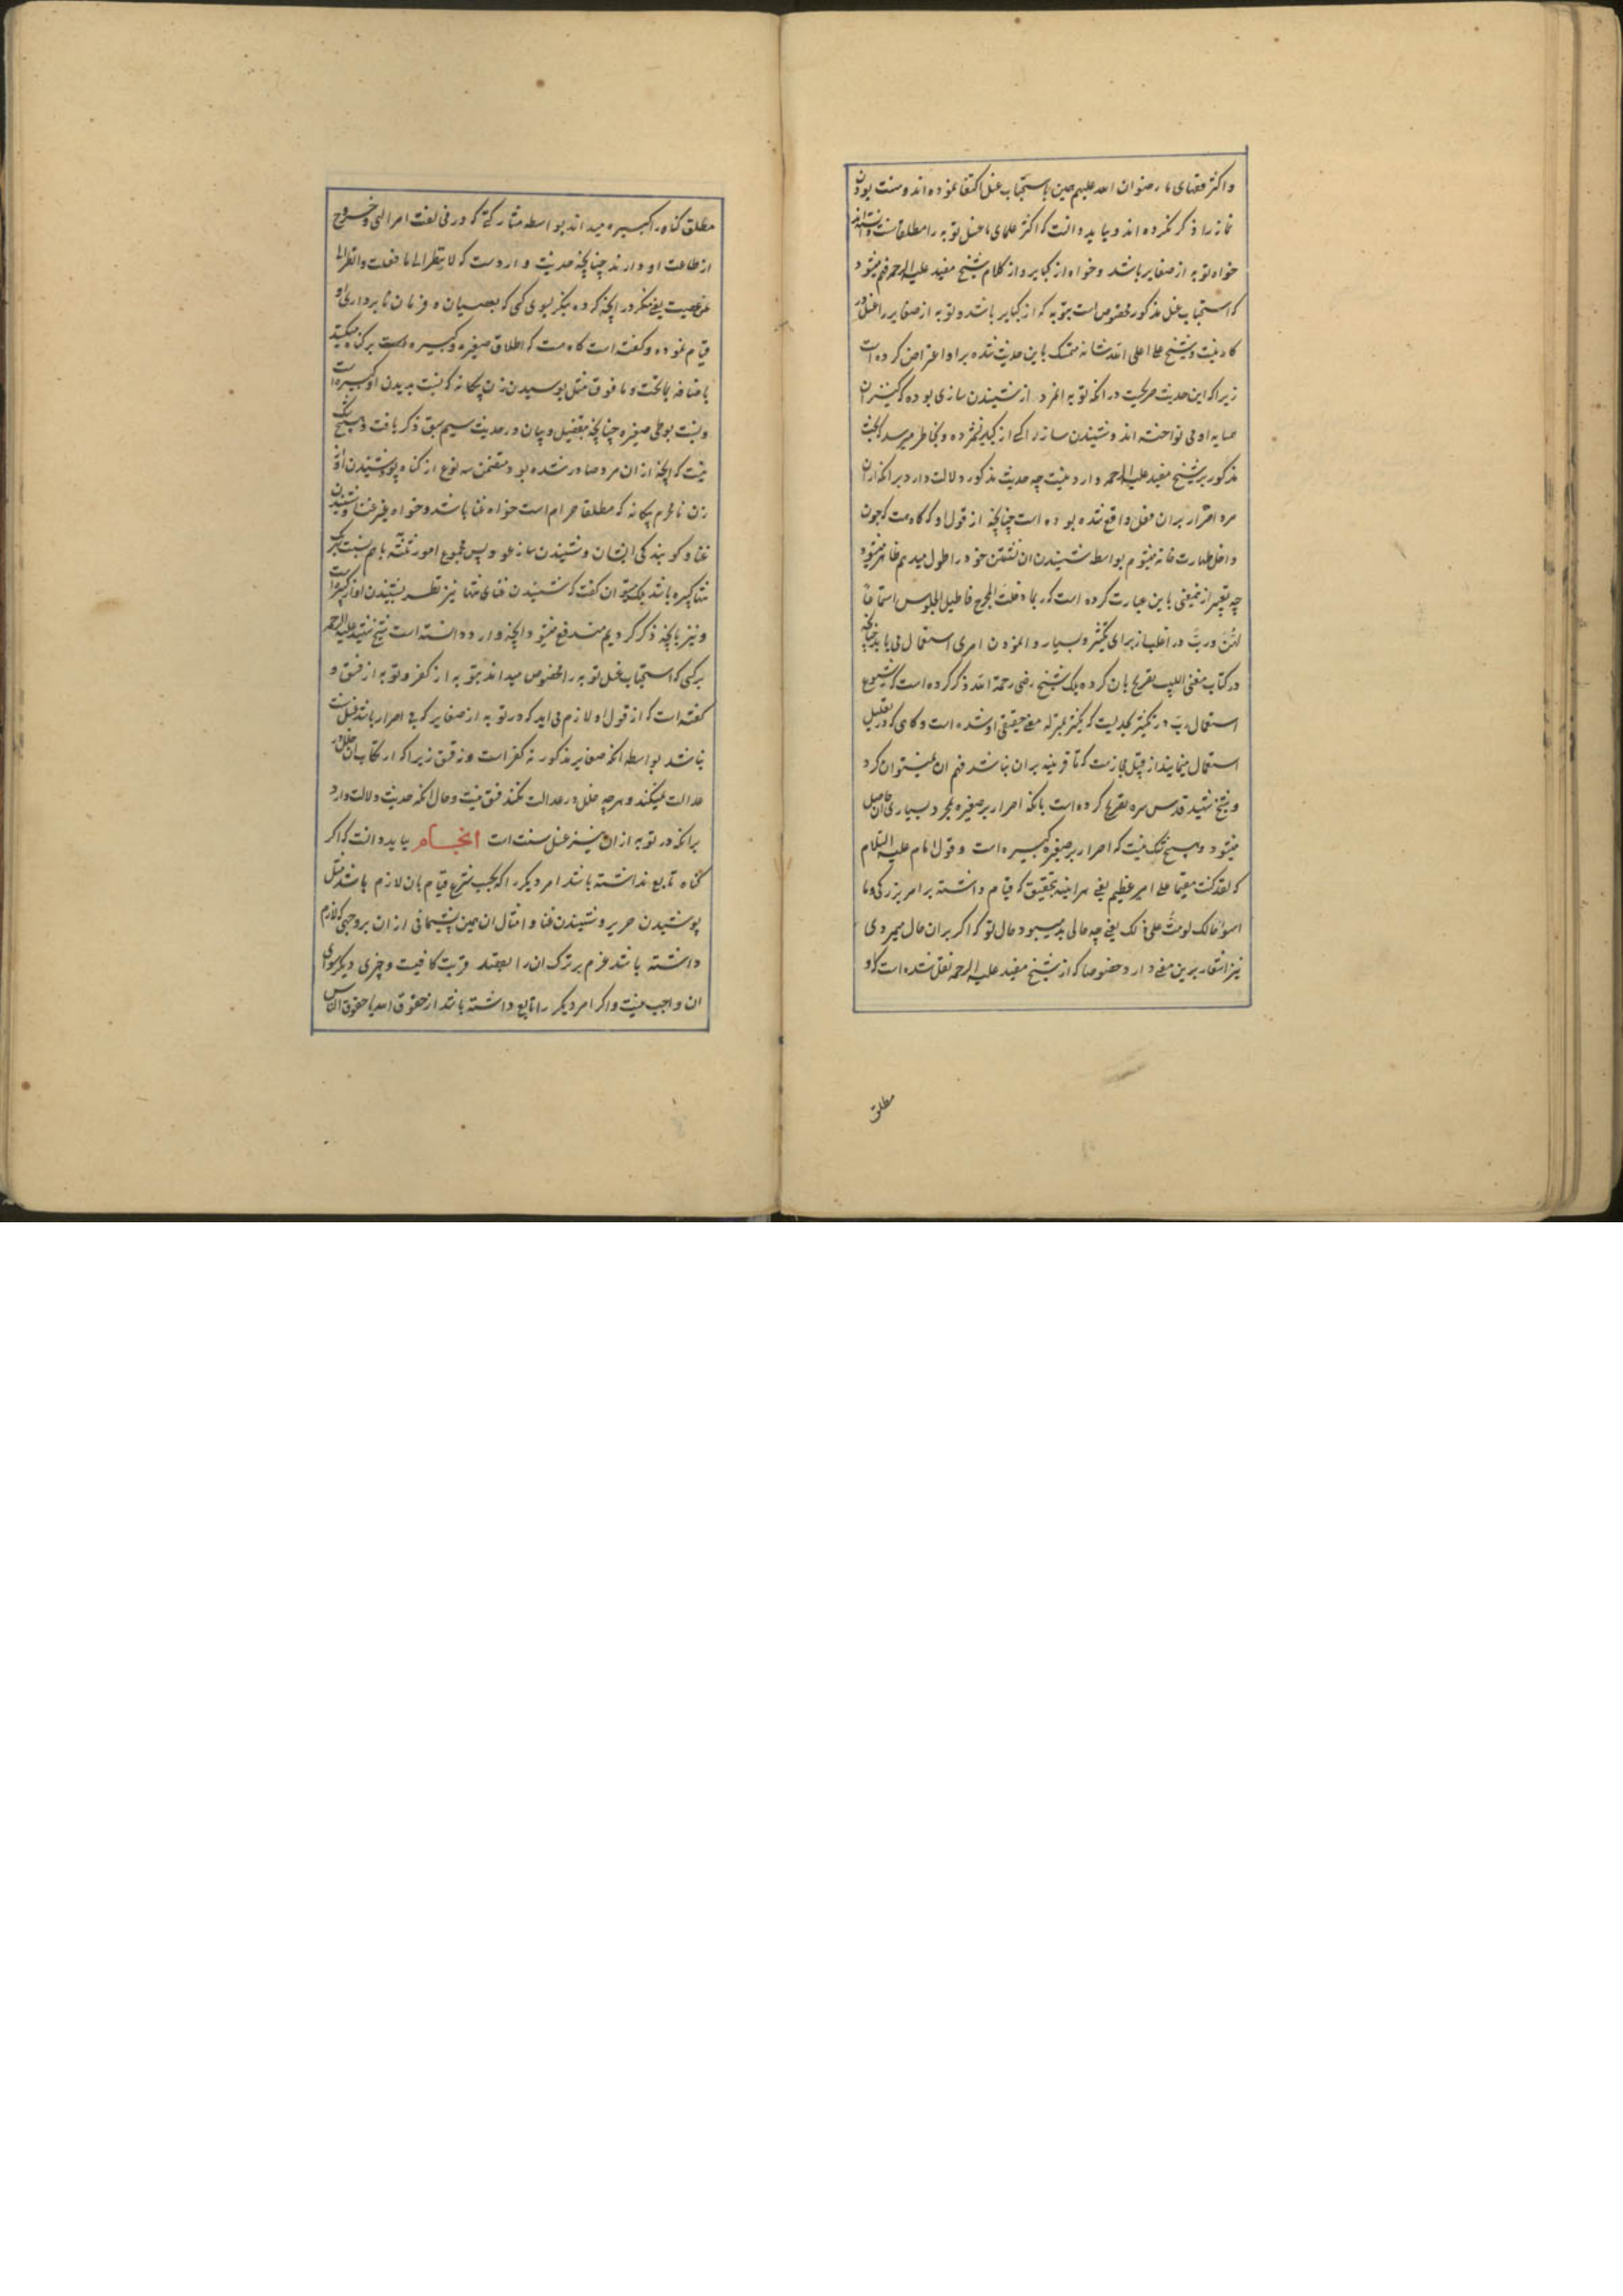 و اکثر فقهای ما رضوان الله علیهم همین باستحباب غسل اکتفا نموده اند و سنت بودن
نماز را ذکر نکرده اند و باید دانست که اکثر علمای ما غسل توبه را مطلقا سنت دانسته اند
خواه توبه از صغایر باشد و خواه از کبایر و از کلام شیخ مفید علیه الرحمه فهم میشود
که استحباب غسل مذکور مخصوص است بتوبه که از کبایر باشد و توبه از صغایر را غسل در
کار نیست و شیخ علی اعلی الله شانه متمسک باین حدیث شده بر او اعتراض کرده است
زیرا که این حدیث صریحست در انکه توبه انمرد از شنیدن سازی بوده که کنیزان
همسایه او می نواخته اند و شنیدن ساز را کسی از کبایر نشمرده و بخاطر میرسد که بحث
مذکور بر شیخ مفید علیه الرحمه وارد نیست چه حدیث مذکور دلالت دارد بر انکه از ان
مرد اصرار بران فعل واقع شده بوده است چنانچه از قول او که گاه هست که چون
داخل طهارت خانه میشوم بواسطه شنیدن ان نشستن خود را طول میدهم ظاهر میشود
چه تعبیر ازینمعنی باین عبارت کرده است که ربما دخلت المخرج فاطیل الجلوس استماعا
لهن و رب در اغلب از برای تکثیر و بسیار وانمودن امری استعمال می یابد چنانچه
در کتاب مغنی اللبیب تصریح بان کرده بلکه شیخ رضی رحمه الله ذکر کرده است که شیوع
استعمال رب در تکثیر بحدیست که تکثیر بمنزله معنی حقیقی او شده است و گاهی که در تقلیل
استعمال مینمایند از قبیل مجازست که تا قرینه بران نباشد فهم ان نمیتوان کرد
و شیخ شهید قدس سره تصریح کرده است بانکه اصرار بر صغیره بمجرد بسیاری ان حاصل
میشود و هیچ شک نیست که اصرار بر صغیره کبیره است و قول امام علیه السلام
که لقد کنت مقیما علی امر عظیم یعنی هر اینه بتحقیق که قیام داشته بر امر بزرگی و ما
اسوء حالک لو مت علی ذلک یعنی چه حالی بد میبود حال تو که اگر بران حال میمردی
نیز اشعار برین معنی دارد خصوصا که از شیخ مفید علیه الرحمه نقل شده است که او
مطلق
مطلق گناه را کبیره میداند بواسطه مشارکتی که در مخالفت امر الهی و خروج
از طاعت او دارند چنانچه در حدیث واردست که لا تنظر الی ما فعلت وانظر الی
من عصیت یعنی منکر در انچه کرده بنکر بسوی کسی که بعصیان و فرمان نابرداری او
قیام نموده و گفته است که گاه هست که اطلاق صغیره و کبیره است بر گناه میکنند
باضافه بماتحت و ما فوق مثل بوسیدن زن بیگانه که نسبت بدیدن او کبیره است
و نسبت بوطی صغیره چنانچه بتفصیل و بیان در حدیث سیم سبق ذکر یافت و هیچ شک
نیست که انچه از ان مرد صادر شده بود متضمن سه نوع از گناه بود شنیدن اواز
زن نامحرم بیگانه که مطلقا حرام است خواه غنا باشد و خواه بغیر غنا و شنیدن
غنا و گویندگی ایشان و شنیدن ساز عود پس مجموع امور ثلثه باهم نسبت بهر یک
تنها کبیره باشد بلکه میتوان گفت که شنیدن غنای تنها نیز نظر بشنیدن اواز کبیره است
و نیز بانچه ذکر کردیم مندفع میشود انچه وارد دانسته است شیخ شهید علیه الرحمه
بر کسی که استحباب غسل توبه را مخصوص میداند بتوبه از کفر و توبه از فسق و
گفته است که از قول او لازم می اید که در توبه از صغایر که بی اصرار باشد غسل سنت
نباشد بواسطه انکه صغایر مذکور نه کفر است و نه فسق زیرا که ارتکاب ان خلل در
عدالت نمیکند و هر چه خلل در عدالت نکند فسق نیست و حال انکه حدیث دلالت دارد
بر انکه در توبه از ان نیز غسل سنت است انجام باید دانست که اگر
گناه تابع نداشته باشد امر دیگر را که بحسب شرع قیام بان لازم باشد مثل
پوشیدن حریر و شنیدن غنا و امثال ان همین پشیمانی از ان بر وجهی که لازم
داشته باشد عزم بر ترک ان را بقصد قربت کافیست و چیزی دیگر سوای
ان واجب نیست و اگر امر دیگر را تابع داشته باشد از حقوق الله یا حقوق الناس